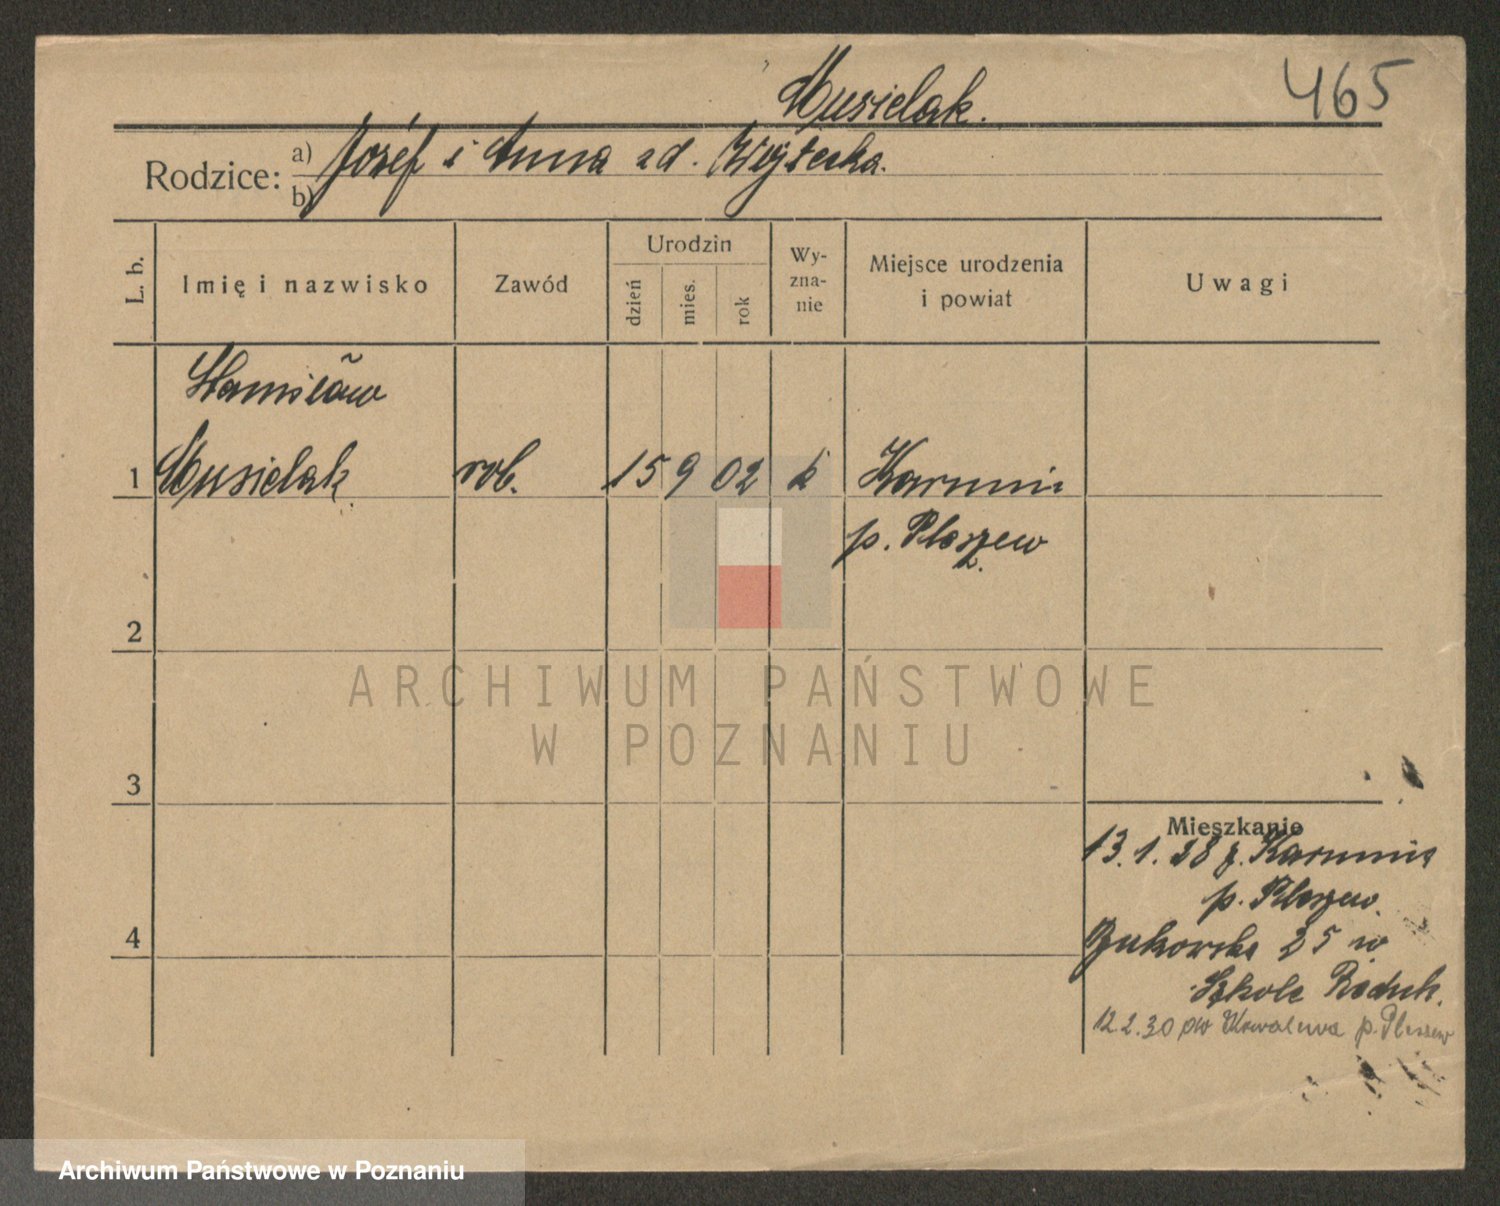 Musielak.
465
Rodzice:
a) Józef i Anna zd.
b)
L. b.
Imię i nazwisko
Zawód
Urodzin
dzień
mies.
rok
Wy-
zna-
nie
Miejsce urodzenia
i powiat
Uwagi
Stanisław
1 Musielak rob. 15 9 02 k Karmin
p. Pleszew
2
3
4
Mieszkanie
13.1.28 z. Karmina
p. Pleszew
Bukowska 25 w
Szkole
12.2.30 do Kowalewa p. Pleszew
ARCHIWUM PAŃSTWOWE
W POZNANIU
Archiwum Państwowe w Poznaniu